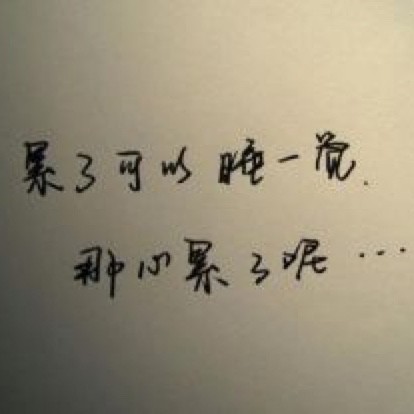 累了可以睡一觉.
那心累了呢…